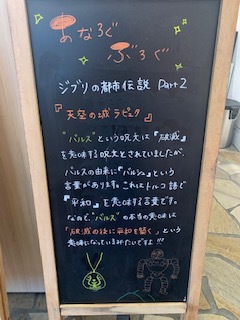 あなろぐ
ぶろぐ
ジブリの都市伝説 Part2
『天空の城 ラピュタ』
"バルス"という呪文は『破滅』
を意味する呪文とされていましたが、
バルスの由来に『バルシュ』という
言葉があります。これはトルコ語で
『平和』を意味する言葉です。
なので、"バルス"の本当の意味は
「破滅の後に平和を築く」という
意味になっているみたいですよ!!!